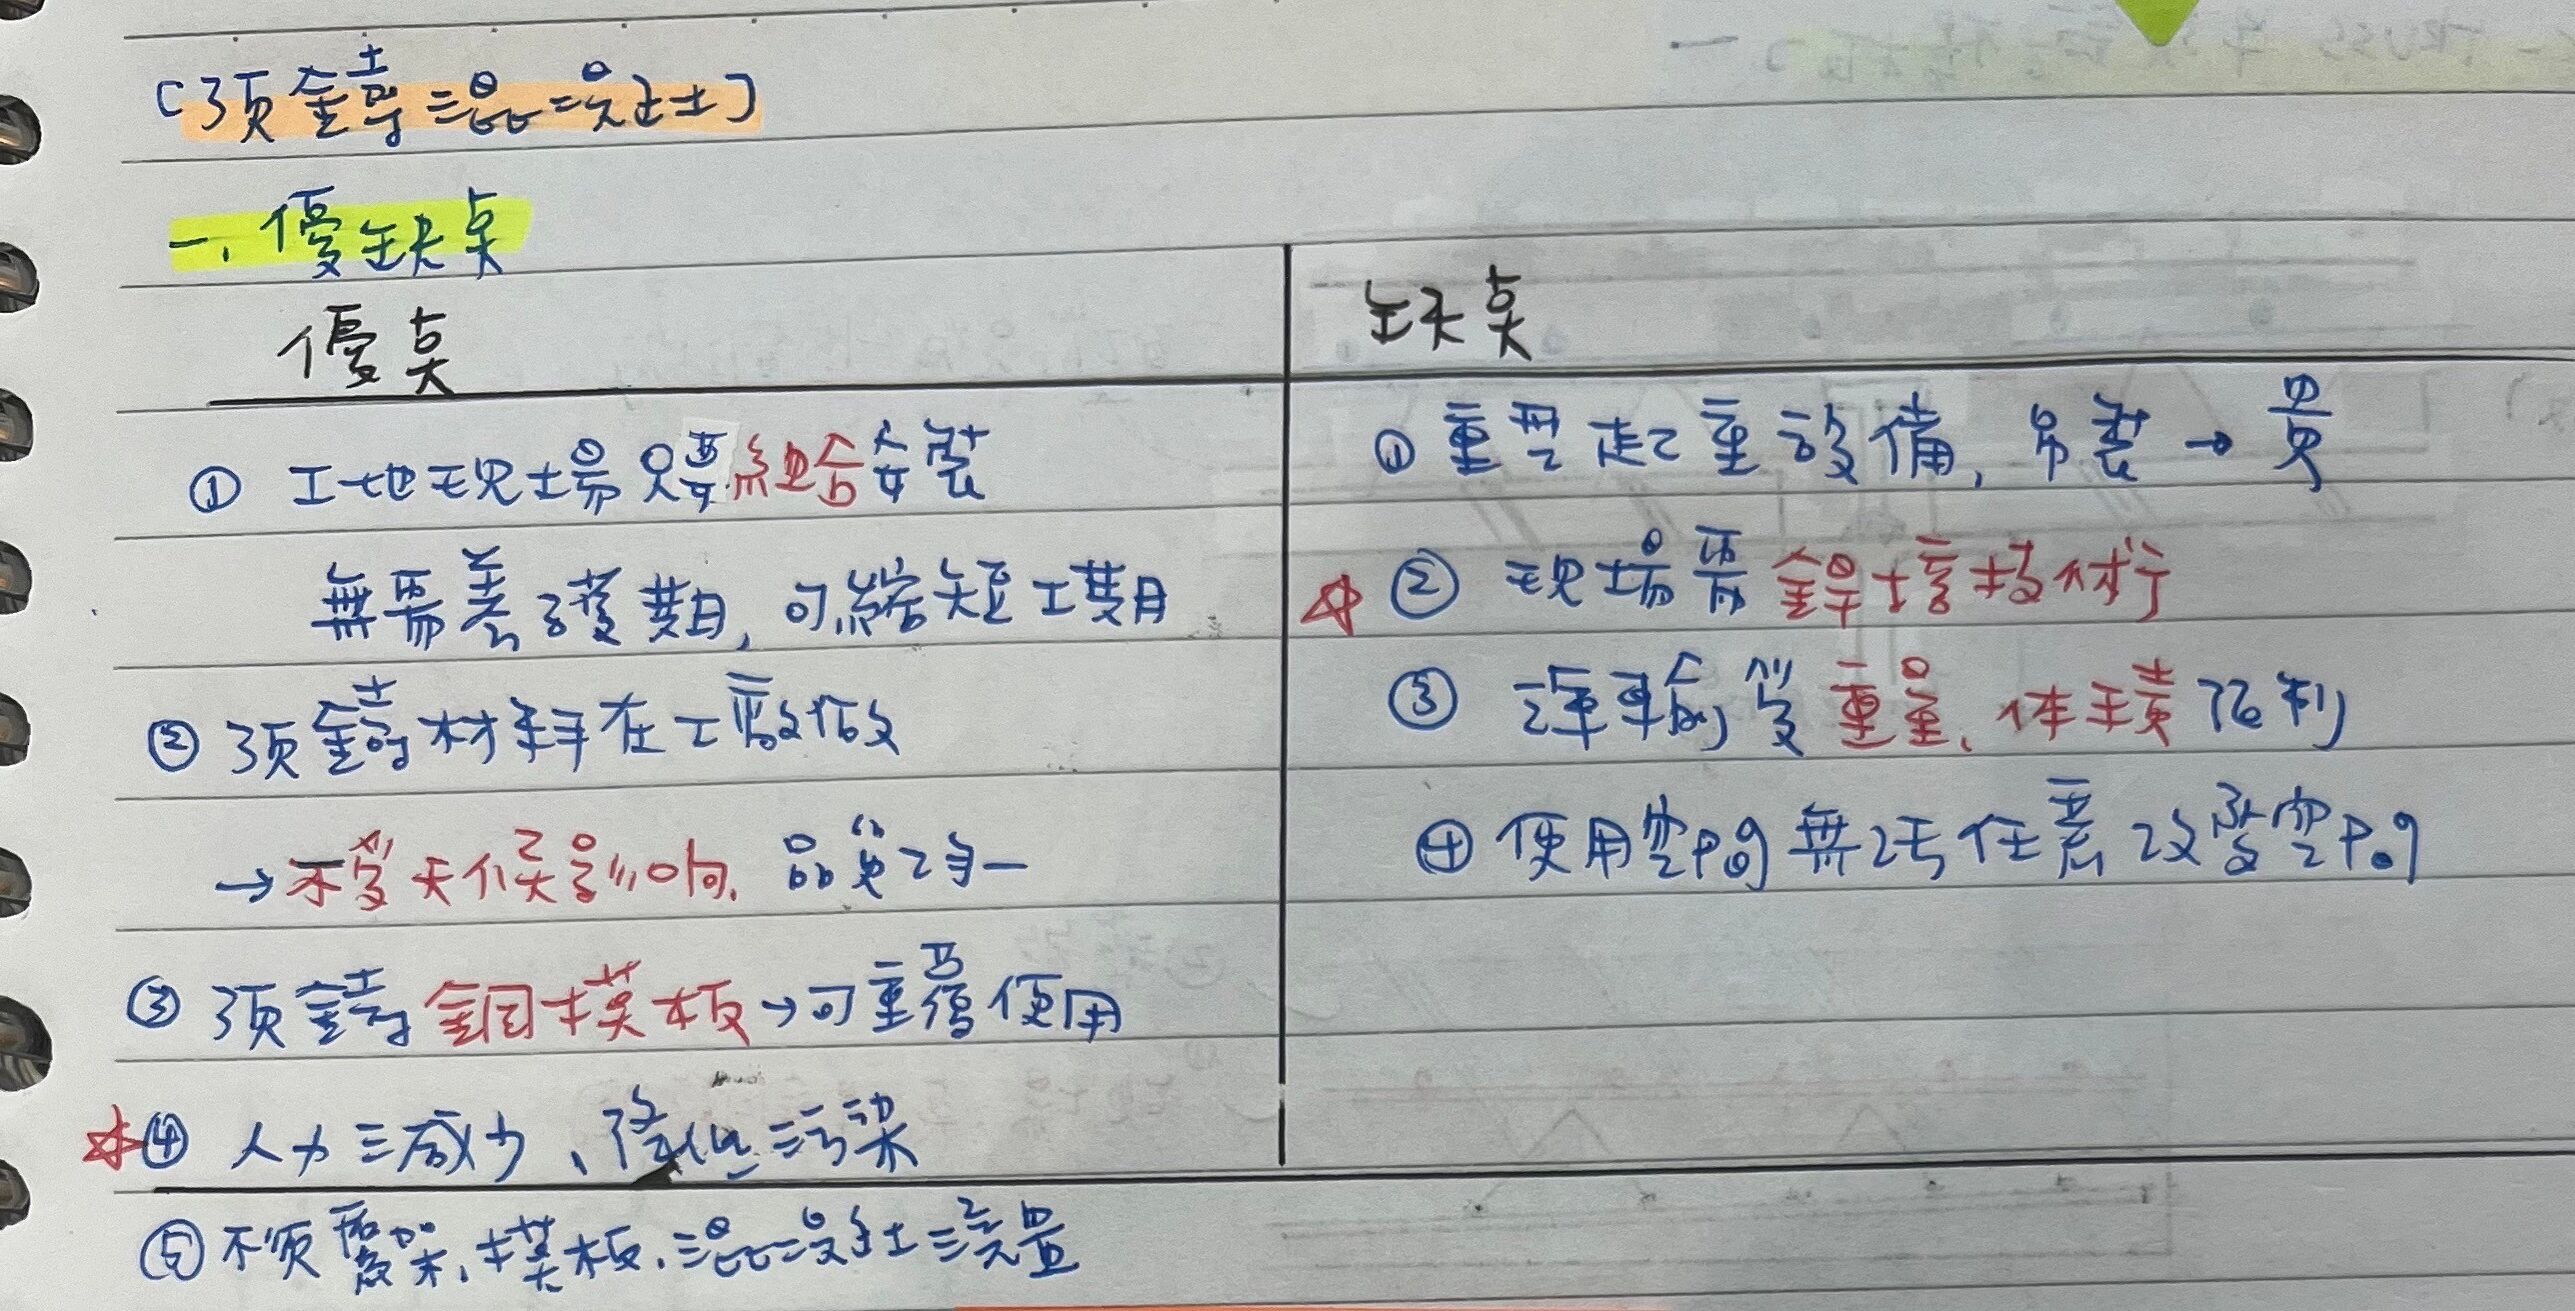 [預鑄混凝土]
一、優缺点
優点
① 工地現場只要組合安裝
無需養護期,可縮短工期
② 預鑄材料在工廠做
→不受天候影响.品質均一
③ 預鑄鋼模板→可重覆使用
☆④ 人力減少、降低污染
⑤不須鷹架、模板、混凝土澆置
缺点
① 重型起重設備,吊裝→貴
☆② 現場需銲接技術
③ 運輸受重量、体積限制
④ 使用空間無法任意改變空間